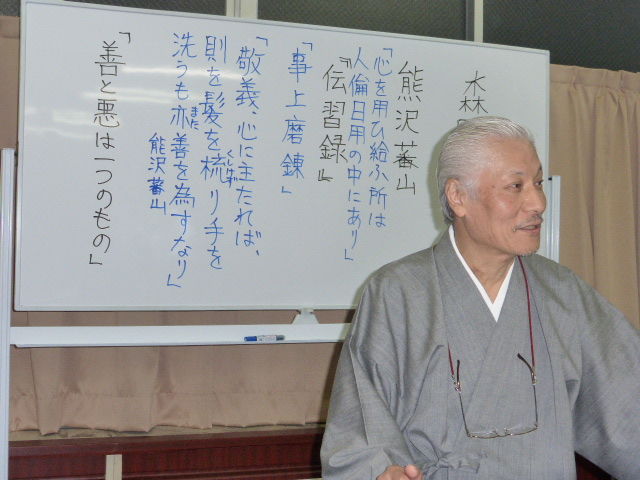 熊沢蕃山
「心を用ひ給ふ所は
人倫日用の中にあり」
『伝習録』
「事上磨錬」
「敬義、心に主たれば、
則を髪を梳り手を
くしけず
洗うも亦善を為すなり」
また
熊沢蕃山
「善と悪は一つのもの」